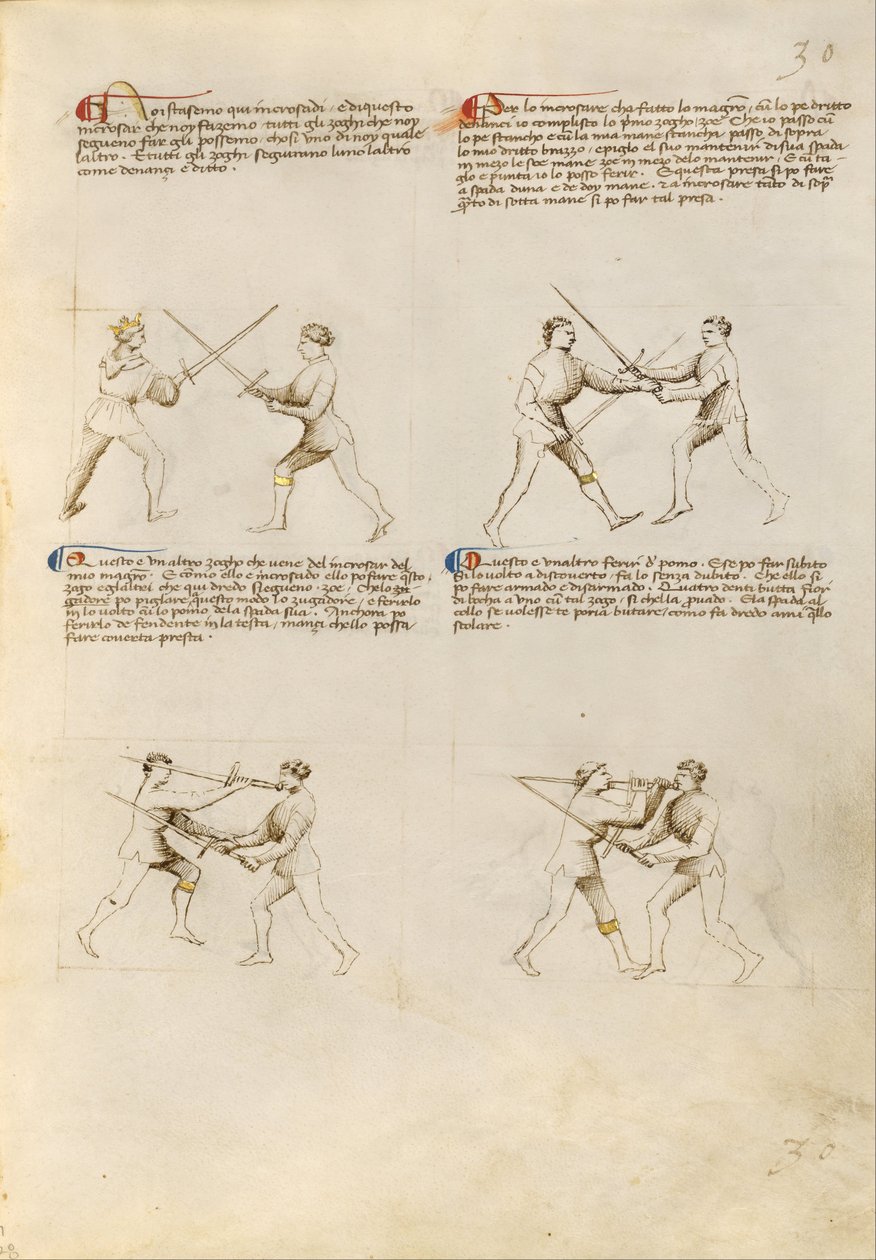 30
Noi stasemo qui incrosadi, e di questo
incrosar che noy fazemo tutti gli zoghi che noy
segueno far gli possemo, chosi uno di noy quale
laltro. E tutti gli zoghi seguirano luno laltro
come denançi è ditto.
Per lo incrosare cha fatto lo magro, cu lo pe dritto
denanci io complisto lo pmo zogho, zoe Che io passo cu
lo pe stancho e cu la mia mane stancha passo di sopra
lo mio dritto brazzo, e piglo el suo mantenir di sua spada
in mezo le soe mane zoe in mezo delo mantenir. E cu ta-
glo e punta io lo posso ferir. E questa presa si po fare
a spada duna e de doy mane. 2 a incrosare tato di sop
qto di sotta mane si po far tal presa.
Questo e un altro zogho che vene del incrosar del
mio magro. E como ello e incrosado ello po fare qsto
zogo e gli altri che qui dredo segueno, zoe, Che lo zu
gadore po piglare questo modo lo zugadore, e ferirlo
in lo volto cu lo pomo dela spada sua. Anchora po
ferirlo de fendente in la testa, inançi chello possa
fare coverta presta.
Questo e un altro ferir d pomo. E se po far subito
Si lo volto a discoverto, fa lo senza dubito. Che ello si
po fare armado e disarmado. Quatro denti butta fuor
di bocha a uno cu tal zogo, si chella provado. E la spada al
collo se volesse te poria butare, como fa dredo a mi qllo
scolare.
30